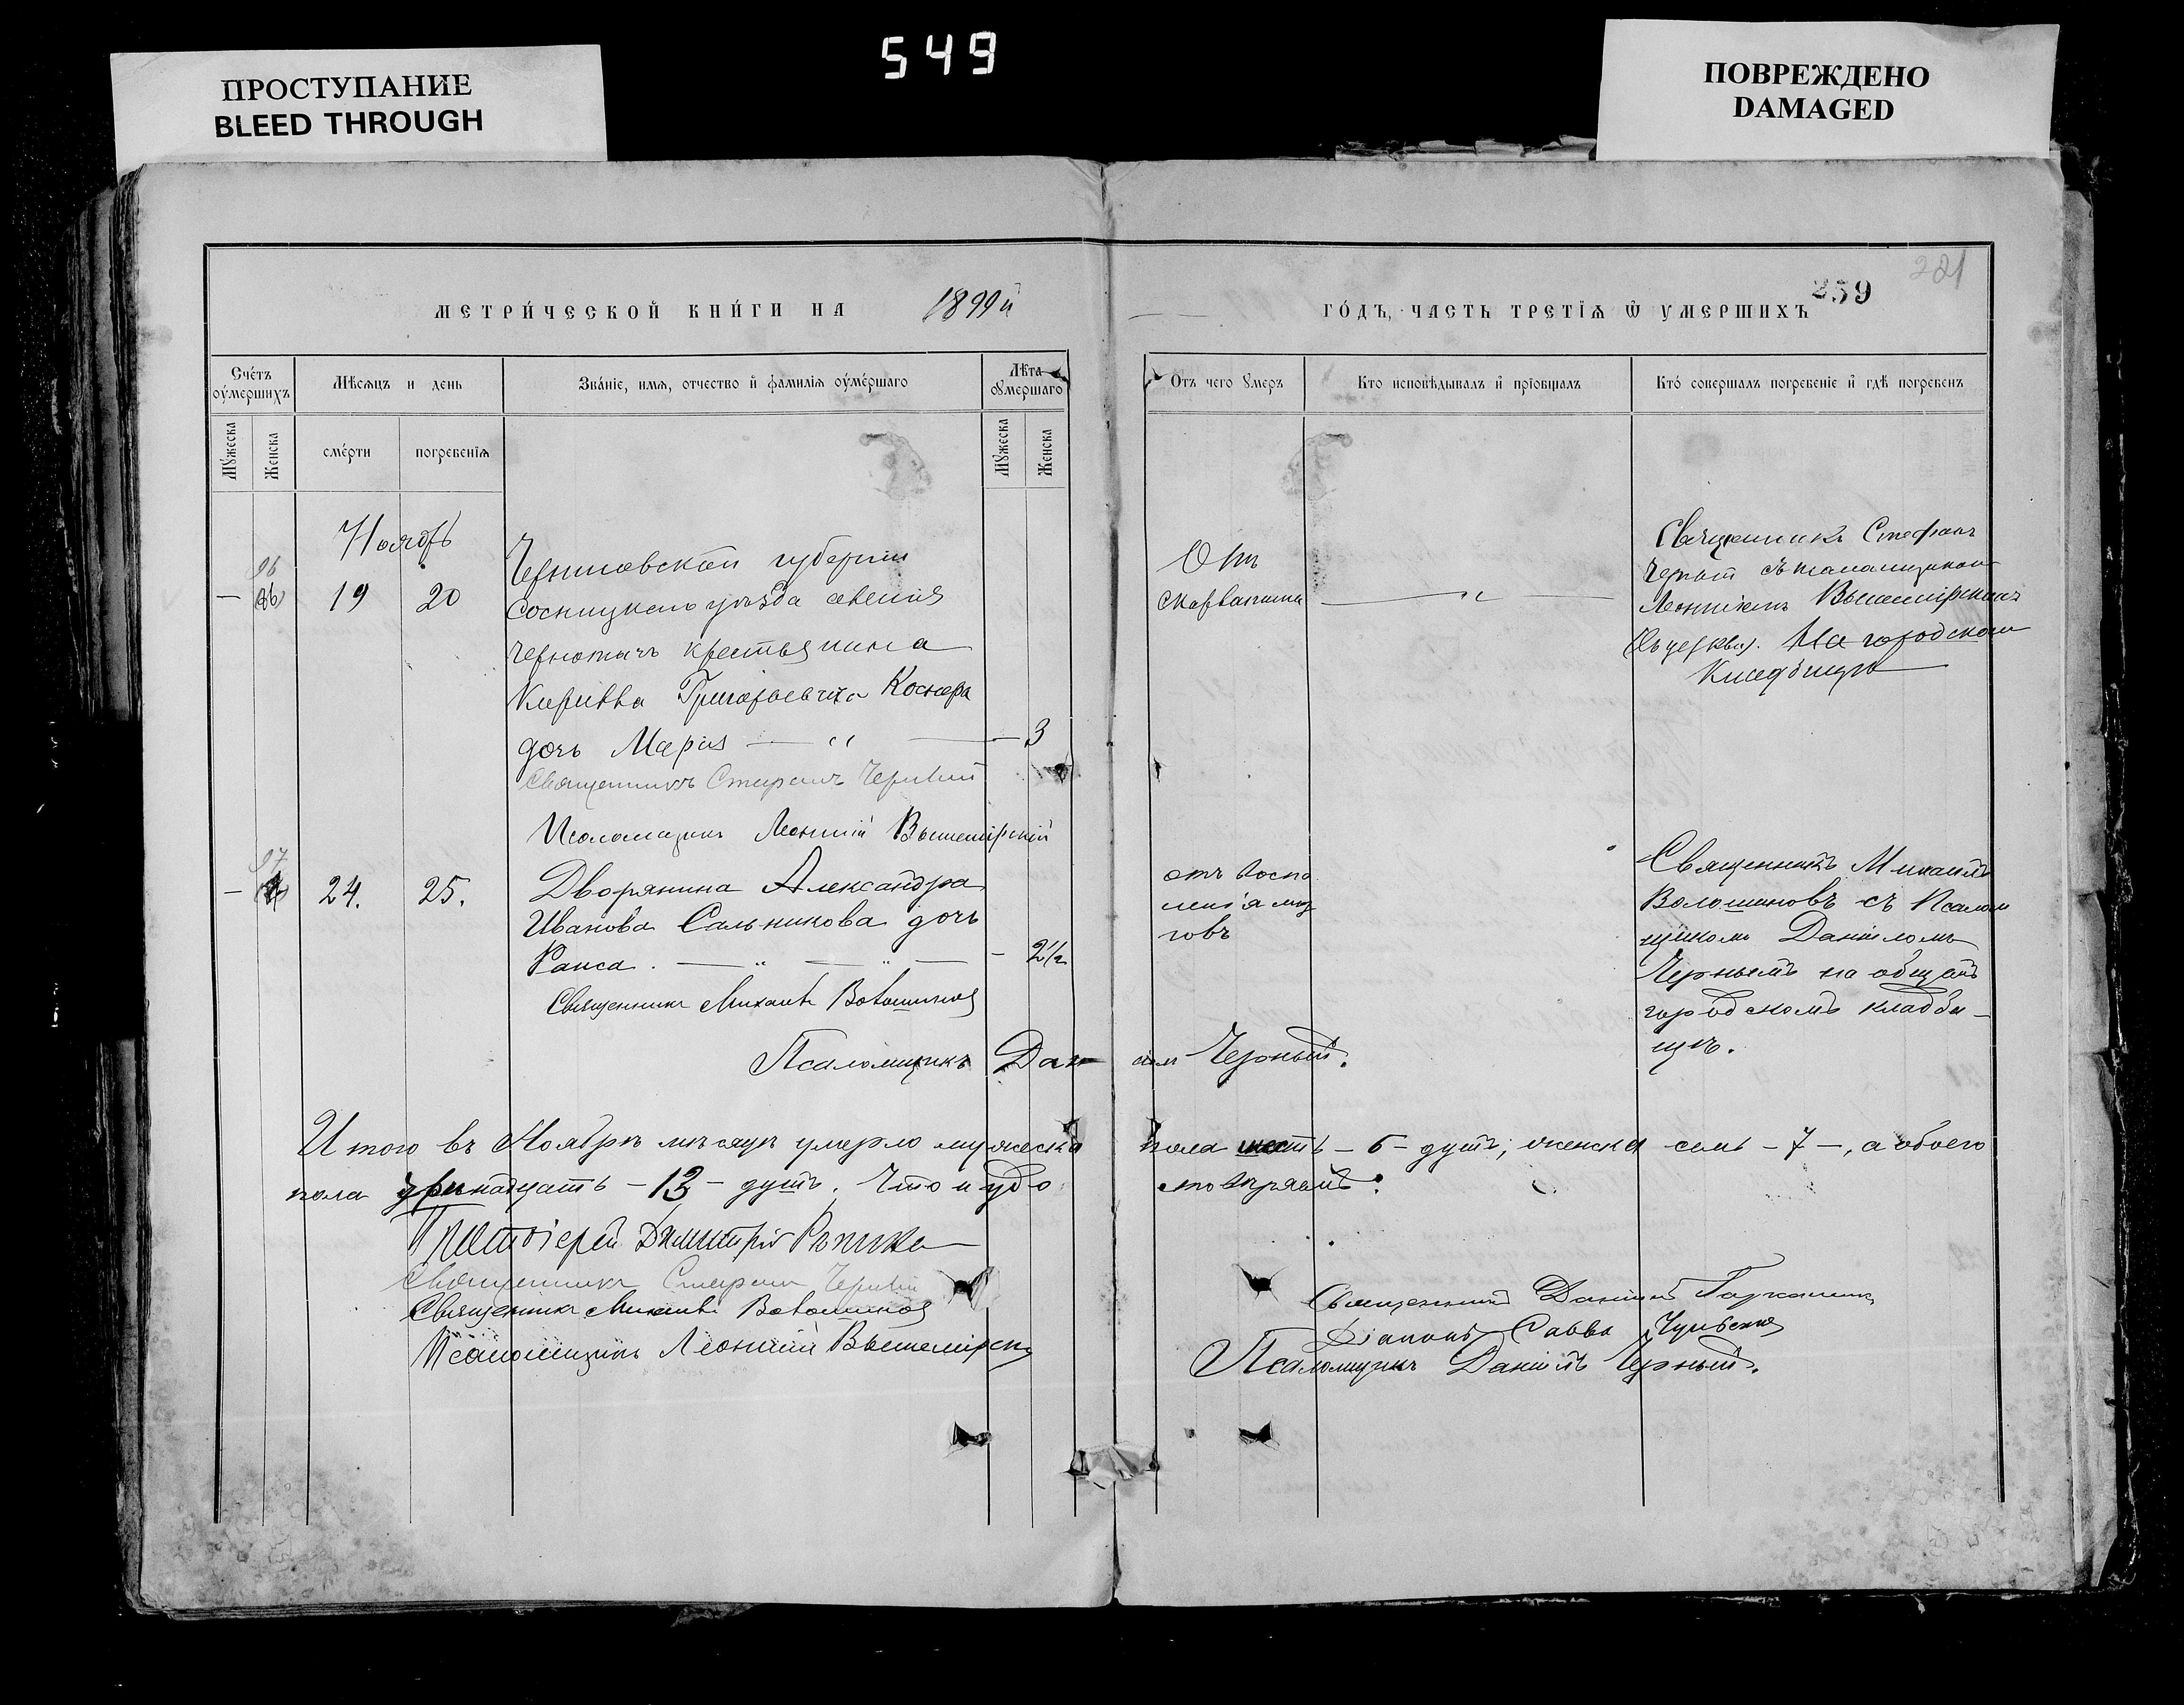 549
ПРОСТУПАНИЕ
BLEED THROUGH
ПОВРЕЖДЕНО
DAMAGED
МЕТРИ́ЧЕСКОЙ КНИ́ГИ НА 1899й
ГО́ДЪ, ЧАСТЬ ТРЕТІѦ Ѿ УМЕРШИХЪ
259
221
Сче́тъ оу́мершихъ
Мѣсяцъ и день
Зва́ніе, имя, отчество и фамилія оуме́ршаго
Лѣта оумершаго
Мꙋжеска
Женска
сме́рти
погребенїя
Мꙋжеска
Женска
Отъ чего ꙋмеръ
Кто исповѣдывалъ и прїобщалъ
Кто́ совершалъ погребенїе и гдѣ погребенъ
Ноябрь
96
— 19 20
Черниговской губернии
Сосницкаго уѣзда селенія
Чернотичъ крестьянина
Кирилла Григорьевича
дочь Марія — " — 3
Священникъ Стефанъ Черный
Псаломщикъ Леонтій Вышемірскій
Отъ
скарлатины
— " —
Священникъ Стефанъ
Черный съ псаломщикомъ
Леонтіемъ Вышемірскимъ
На городскомъ
Кладбищѣ
97
— 24. 25.
Дворянина Александра
Иванова Сальникова дочь
Раиса. — " — " — - 2½
Священникъ Михаилъ Волошиновъ
Псаломщикъ Даніилъ Черный.
отъ воспа
ленія моз
говъ
Священникъ Михаилъ
Волошиновъ съ Псалом
щикомъ Даніиломъ
Чернымъ на общемъ
городскомъ кладби-
щѣ.
Итого въ Ноябрѣ мѣсяцѣ умерло мужеска пола шесть - 6 - душъ; женска семь - 7 -, а обоего
пола тринадцать - 13 - душъ. Что и удостовѣряемъ:
Протоіерей Димитрій
Священникъ Стефанъ Черный
Священникъ Михаилъ Волошиновъ
Псаломщикъ Леонтій Вышемірскій
Священникъ Даніилъ
Діаконъ Савва
Псаломщикъ Даніилъ Черный.